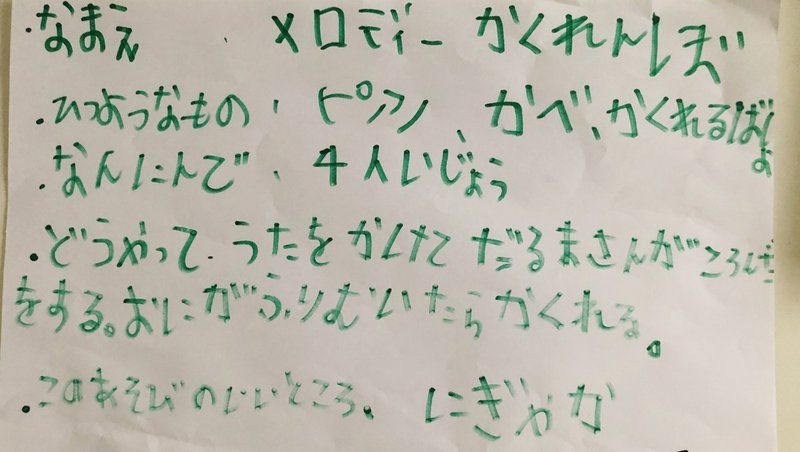 ・なまえ ・ メロディー かくれんしぼ
・ひつようなもの ・ ピアノ、かべ、かくれるばしょ
・なんにんで ・ 4人いじょう
・どうやって・うたをかけて だるまさんがころんだ
をする。おにがふりむいたらかくれる。
・このあそびのいいところ。 にぎやか